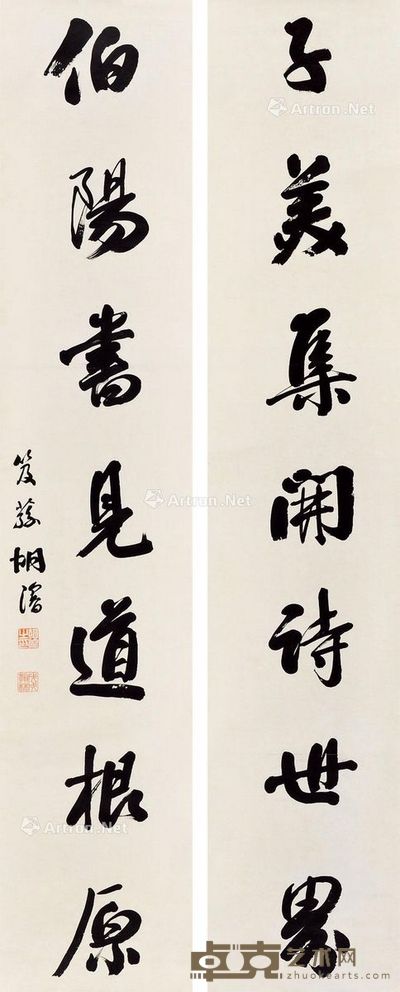 子美集開詩世界
伯陽書見道根原
笈蓀胡濬
Artron.Net
Artron.Net
Artron.Net
Artron.Net
卓克艺术网
zhuokearts.com